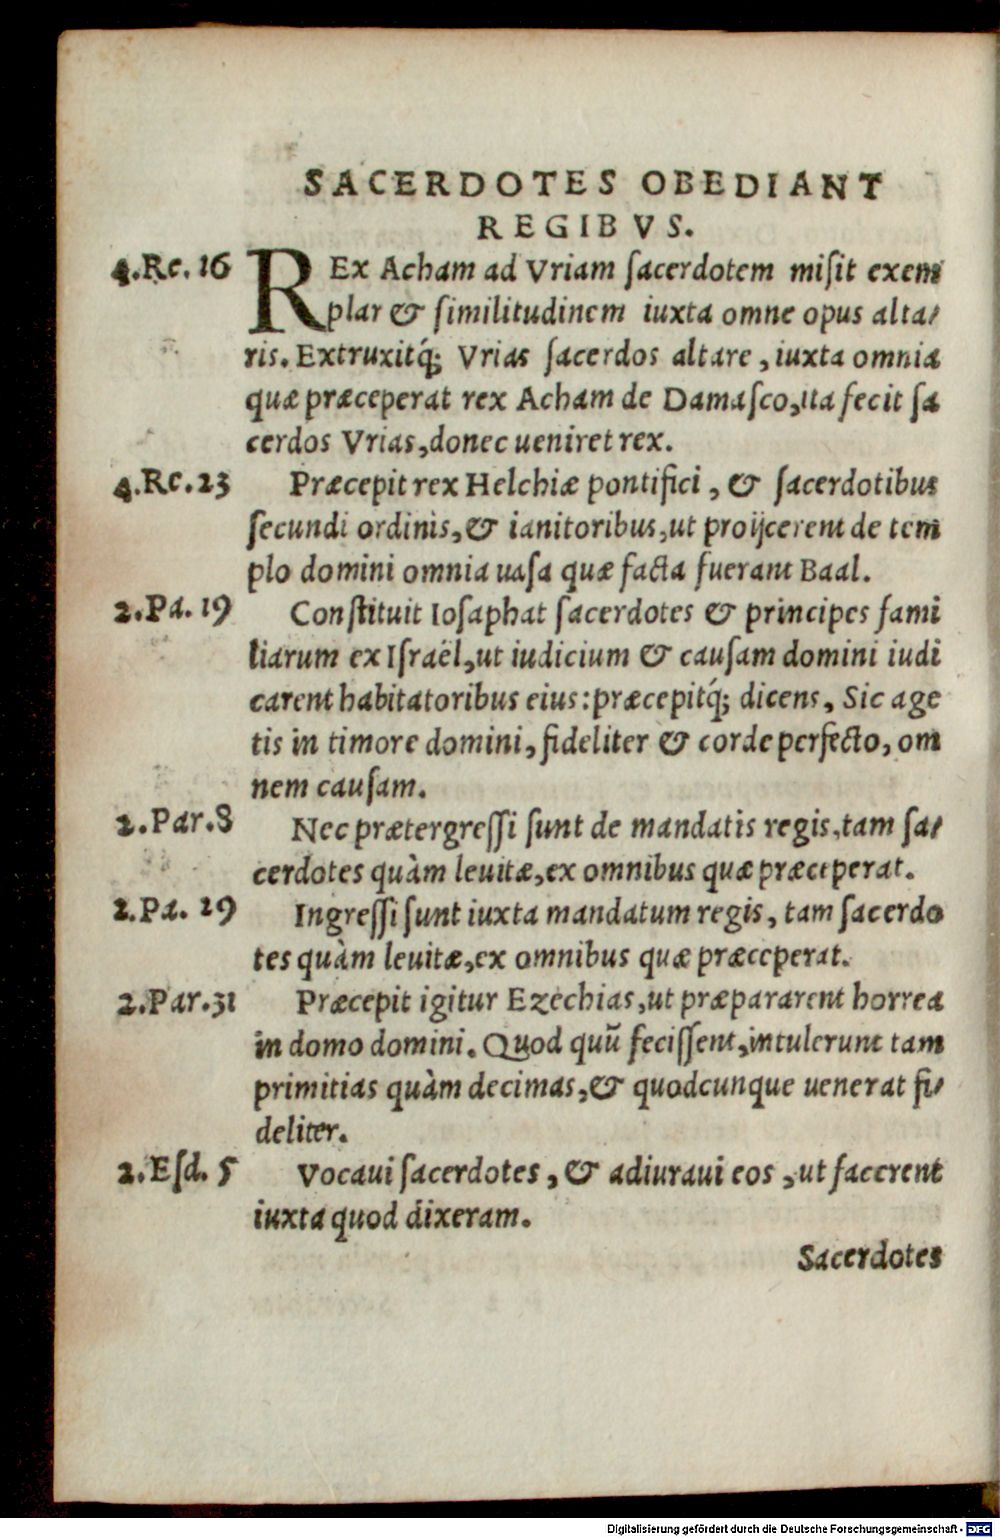 SACERDOTES OBEDIANT
REGIBVS.
4.Re. 16 REx Acham ad Vriam ſacerdotem miſit exem
plar & ſimilitudinem iuxta omne opus alta/
ris. Extruxitq́; Vrias ſacerdos altare, iuxta omnia
quæ præceperat rex Acham de Damaſco, ita fecit ſa
cerdos Vrias, donec ueniret rex.
4.Re.23 Præcepit rex Helchiæ pontifici, & ſacerdotibus
ſecundi ordinis, & ianitoribus, ut proijcerent de tem
plo domini omnia uaſa quæ facta fuerant Baal.
2.Pa. 19 Conſtituit Ioſaphat ſacerdotes & principes fami
liarum ex Iſraël, ut iudicium & cauſam domini iudi
carent habitatoribus eius: præcepitq́; dicens, Sic age
tis in timore domini, fideliter & corde perfecto, om
nem cauſam.
2.Par.8 Nec prætergreſſi ſunt de mandatis regis, tam ſa/
cerdotes quàm leuitæ, ex omnibus quæ præceperat.
2.Pa. 29 Ingreſſi ſunt iuxta mandatum regis, tam ſacerdo
tes quàm leuitæ, ex omnibus quæ præceperat.
2.Par.31 Præcepit igitur Ezechias, ut præpararent horrea
in domo domini. Quod quũ feciſſent, intulerunt tam
primitias quàm decimas, & quodcunque uenerat fi/
deliter.
2.Eſd. 5 Vocaui ſacerdotes, & adiuraui eos, ut facerent
iuxta quod dixeram.
Sacerdotes
Digitalisierung gefördert durch die Deutsche Forschungsgemeinschaft - DFG